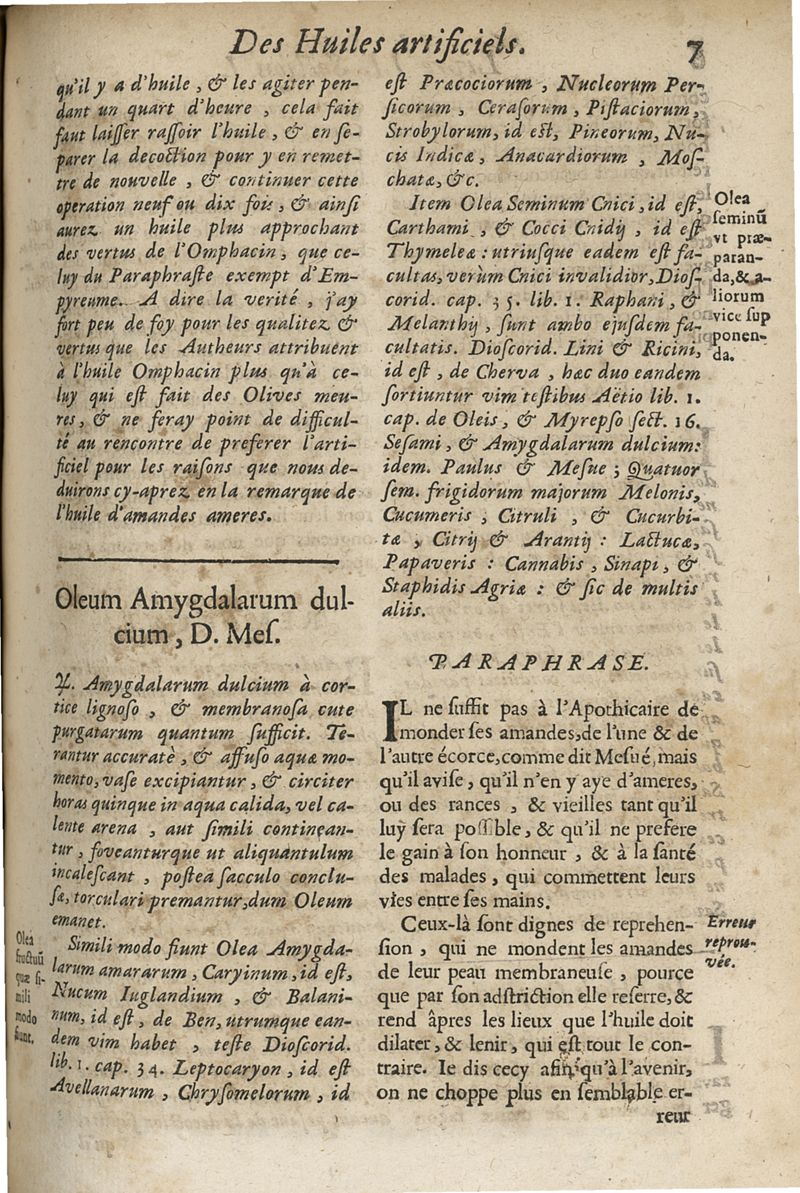 Des Huiles artificiels. 7
qu'il y a d'huile, & les agiter pen-
dant un quart d'heure, cela fait
faut laiſſer raſſoir l'huile, & en ſe-
parer la decoction pour y en remet-
tre de nouvelle, & continuer cette
operation neuf ou dix fois, & ainſi
aurez un huile plus approchant
des vertus de l'Omphacin, que ce-
luy du Paraphraſte exempt d'Em-
pyreume. A dire la verité, j'ay
fort peu de foy pour les qualitez &
vertus que les Autheurs attribuent
à l'huile Omphacin plus qu'à ce-
luy qui eſt fait des Olives meu-
res, & ne feray point de difficul-
té au rencontre de preferer l'arti-
ficiel pour les raiſons que nous de-
duirons cy-aprez en la remarque de
l'huile d'amandes ameres.
Oleum Amygdalarum dul-
cium, D. Meſ.
♃. Amygdalarum dulcium à cor-
tice lignoſo, & membranoſa cute
purgatarum quantum ſufficit. Te-
rantur accuratè, & affuſo aquæ mo-
mento, vaſe excipiantur, & circiter
horas quinque in aqua calida, vel ca-
lente arena, aut ſimili continean-
tur, foveanturque ut aliquantulum
incaleſcant, poſteà ſacculo conclu-
ſa, torculari premantur, dum Oleum
emanet.
Simili modo fiunt Olea Amygda-
larum amararum, Caryinum, id eſt,
Nucum Iuglandium, & Balani-
num, id eſt, de Ben, utrumque ean-
dem vim habet, teſte Dioſcorid.
lib. 1. cap. 34. Leptocaryon, id eſt
Avellanarum, Chryſomelorum, id
Olea
fructuū
quæ ſi-
mili
modo
fiunt.
eſt Præcociorum, Nucleorum Per-
ſicorum, Ceraſorum, Piſtaciorum,
Strobylorum, id eſt, Pineorum, Nu-
cis Indicæ, Anacardiorum, Moſ-
chatæ, &c.
Item Olea Seminum Cnici, id eſt,
Carthami, & Cocci Cnidij, id eſt
Thymeleæ: utriuſque eadem eſt fa-
cultas, verùm Cnici invalidior, Dioſ-
corid. cap. 35. lib. 1. Raphani, &
Melanthij, ſunt ambo ejuſdem fa-
cultatis. Dioſcorid. Lini & Ricini,
id eſt, de Cherva, hæc duo eandem
ſortiuntur vim teſtibus Aëtio lib. 1.
cap. de Oleis, & Myrepſo ſect. 16.
Seſami, & Amygdalarum dulcium:
idem. Paulus & Meſue; Quatuor
ſem. frigidorum majorum Melonis,
Cucumeris, Citruli, & Cucurbi-
tæ, Citrij & Arantij: Lactucæ,
Papaveris: Cannabis, Sinapi, &
Staphidis Agriæ: & ſic de multis
aliis.
Olea
ſeminū
vt præ-
paran-
da, & a-
liorum
vice ſup
ponen-
da.
PARAPHRASE.
IL ne ſuffit pas à l'Apothicaire de
monder ſes amandes, de l'une & de
l'autre écorce, comme dit Meſué, mais
qu'il aviſe, qu'il n'en y aye d'ameres,
ou des rances, & vieilles tant qu'il
luy ſera poſſible, & qu'il ne prefere
le gain à ſon honneur, & à la ſanté
des malades, qui commettent leurs
vies entre ſes mains.
Ceux-là ſont dignes de reprehen-
ſion, qui ne mondent les amandes
de leur peau membraneuſe, pource
que par ſon adſtriction elle reſerre, &
rend âpres les lieux que l'huile doit
dilater, & lenir, qui eſt tout le con-
traire. Ie dis cecy afin qu'à l'avenir,
on ne choppe plus en ſemblable er-
reur
Erreur
reprou-
vée.